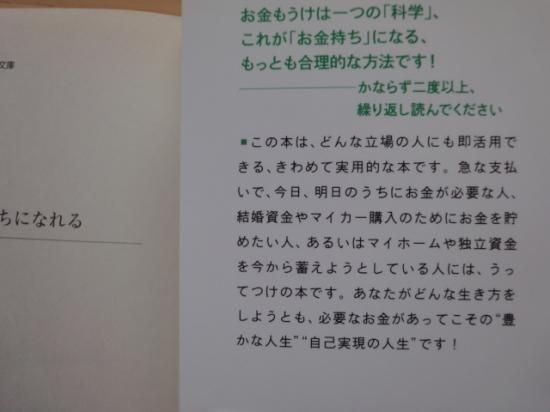 文庫
ちになれる
お金もうけは一つの「科学」、
これが「お金持ち」になる、
もっとも合理的な方法です!
かならず二度以上、
繰り返し読んでください
■この本は、どんな立場の人にも即活用で
きる、きわめて実用的な本です。急な支払
いで、今日、明日のうちにお金が必要な人、
結婚資金やマイカー購入のためにお金を貯
めたい人、あるいはマイホームや独立資金
を今から蓄えようとしている人には、うっ
てつけの本です。あなたがどんな生き方を
しようとも、必要なお金があってこその“豊
かな人生”“自己実現の人生”です!